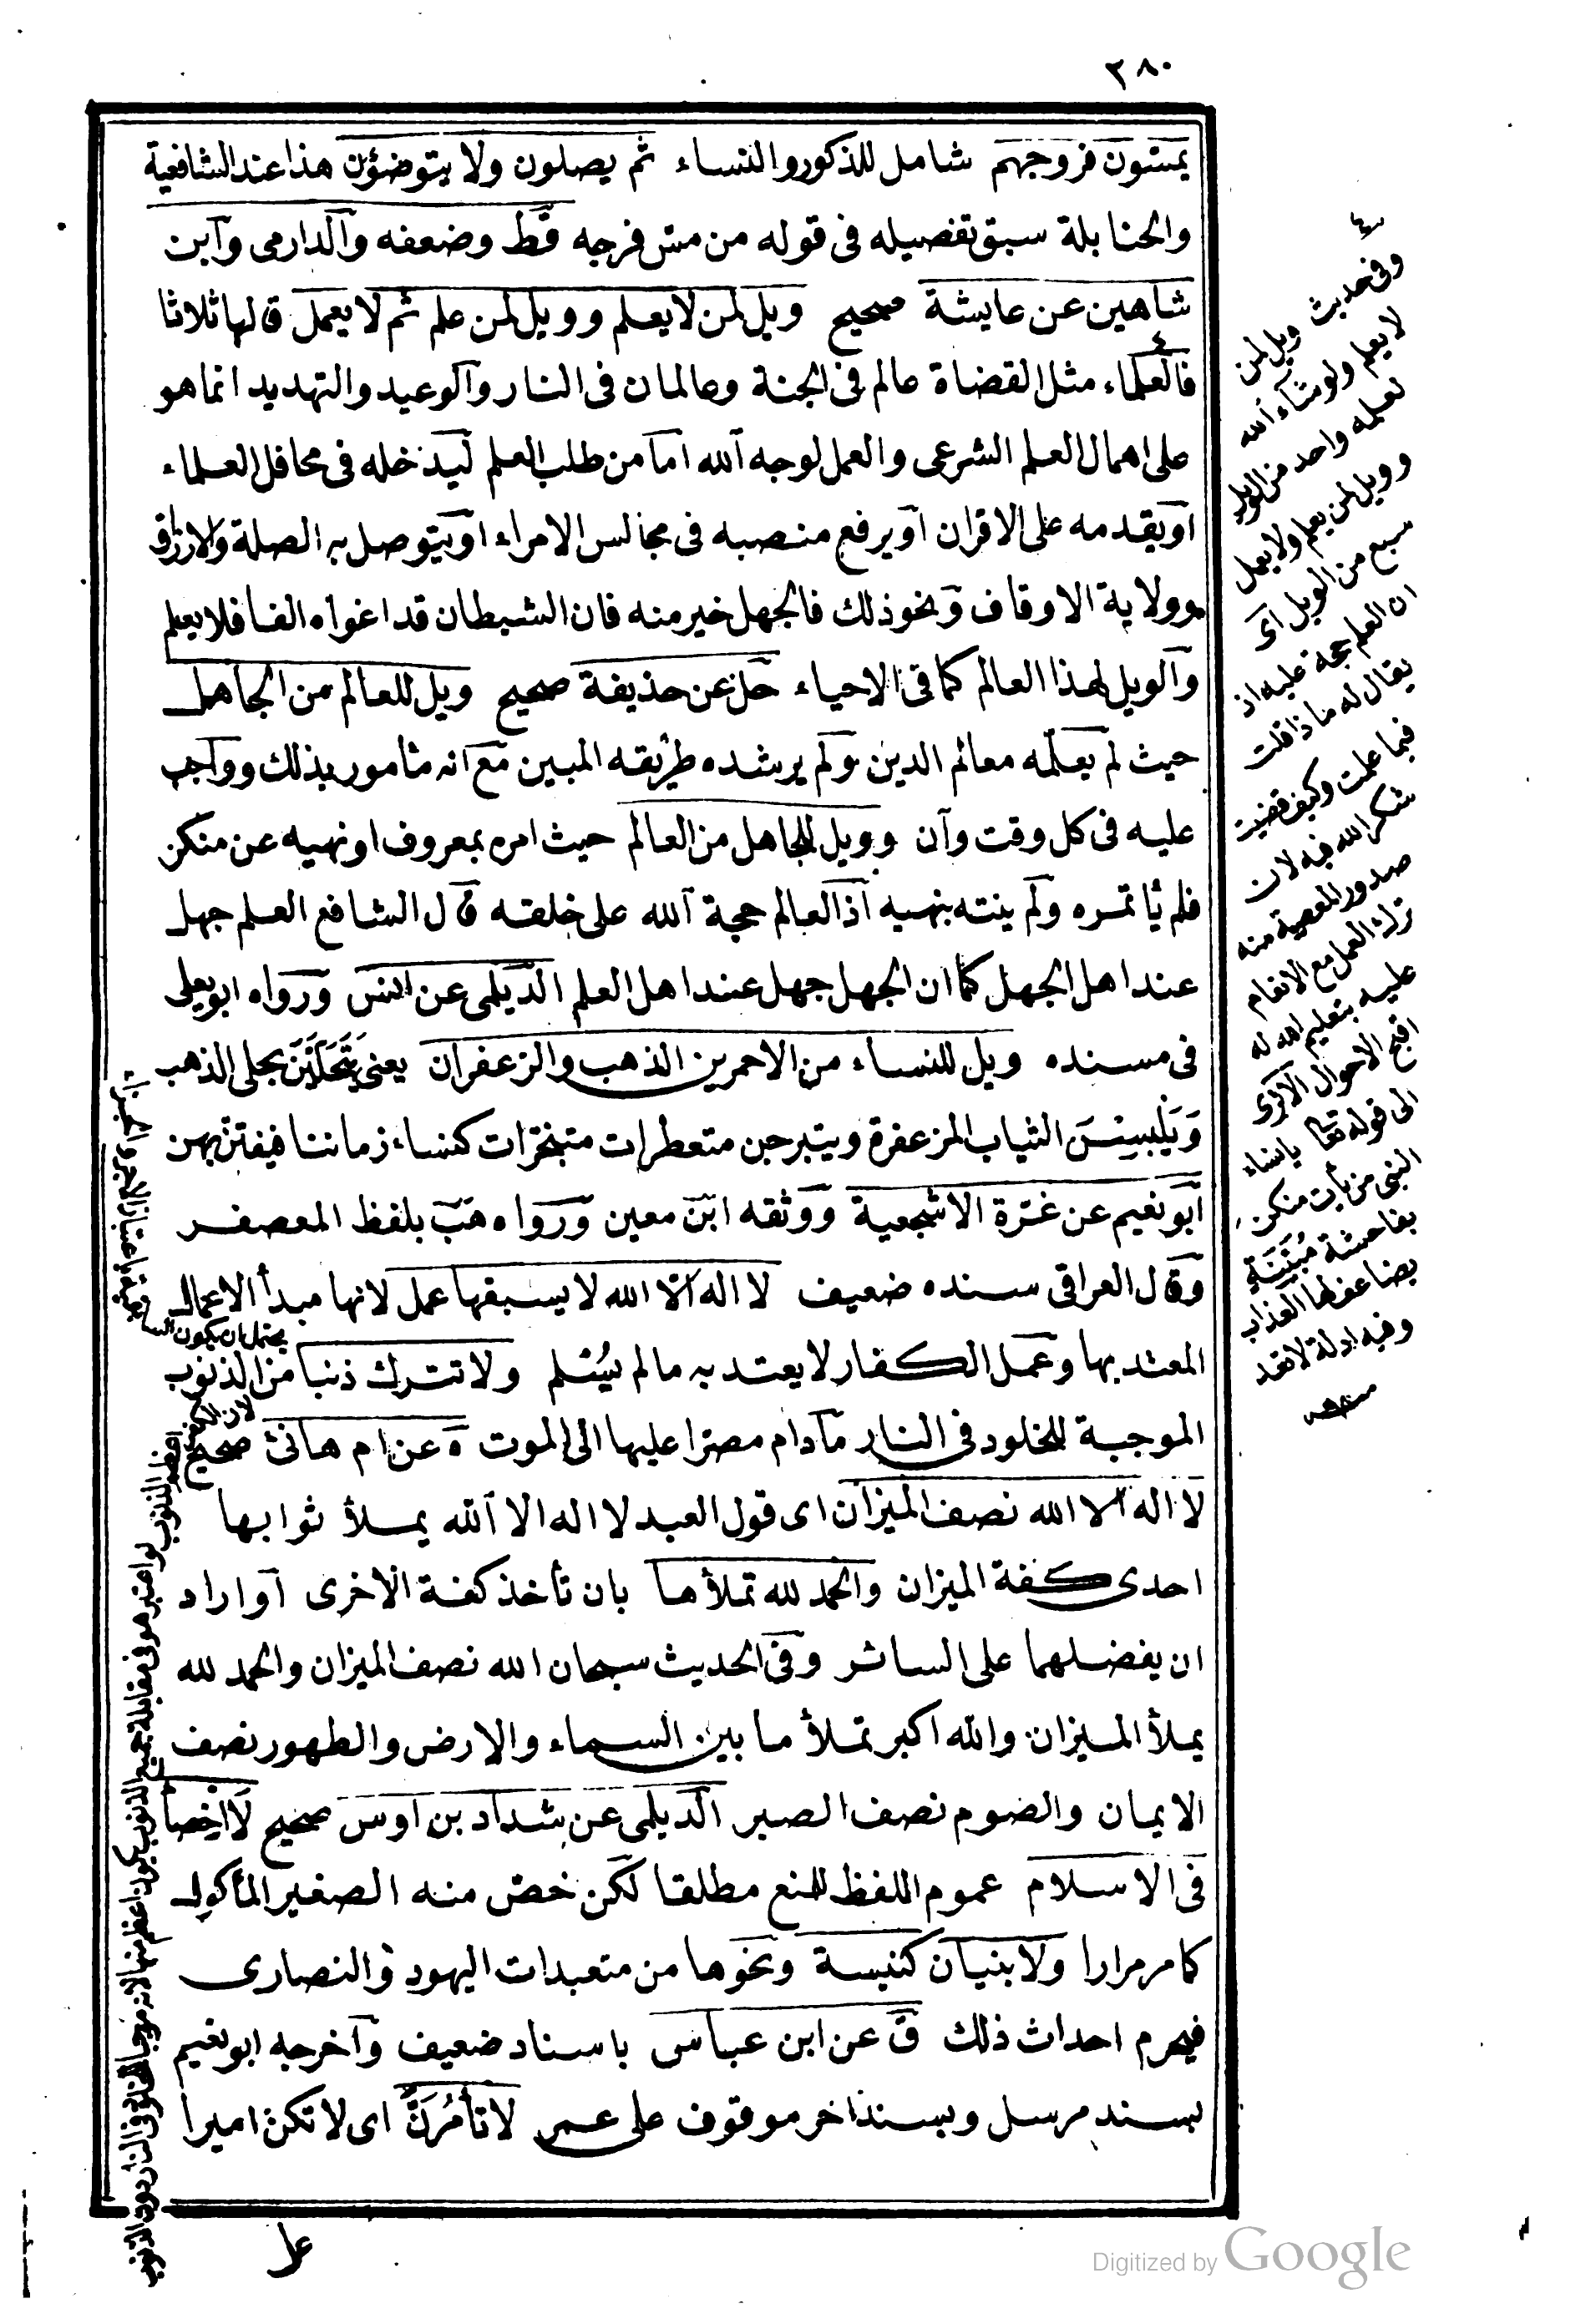 ٢٨٠
يمسون فروجهم شامل للذكور والنساء ثم يصلون ولا يتوضؤن هذا عند الشافعية
والحنابلة سبق تفصيله فى قوله من مس فرجه قط وضعفه والدارمى وابن
شاهين عن عايشة صحيح ويل لمن لا يعلم وويل لمن علم ثم لا يعمل قالها ثلاثا
فالعلماء مثل القضاة عالم فى الجنة وعالمان فى النار والوعيد والتهديد انما هو
على اهمال العلم الشرعى والعمل لوجه الله اما من طلب العلم ليدخله فى محافل العلماء
او يقدمه على الاقران او يرفع منصبه فى مجالس الامراء او يتوصل به الصلة والارزاق
وولاية الاوقاف ونحو ذلك فالجهل خير منه فان الشيطان قد اغواه الفا فلا يعلم
والويل لهذا العالم كما فى الاحياء حل عن حذيفة صحيح ويل للعالم من الجاهل
حيث لم يعلمه معالم الدين ولم يرشده طريقه المبين مع انه مأمور بذلك وواجب
عليه فى كل وقت وآن وويل للجاهل من العالم حيث امره بمعروف او نهيه عن منكر
فلم يأتمره ولم ينته بنهيه اذ العالم حجة الله على خلقه قال الشافع العلم جهل
عند اهل الجهل كما ان الجهل جهل عند اهل العلم الديلمى عن انس ورواه ابو يعلى
فى مسنده ويل للنساء من الاحمرين الذهب والزعفران يعنى يَتَحَلَّيْنَ بحلى الذهب
وَيَلْبِسْنَ الثياب المزعفرة ويتبرجن متعطرات متبخترات كنساء زماننا فيفتتن بهن
ابو نعيم عن غرّة الاشجعية ووثقه ابن معين ورواه هب بلفظ المعصفر
وقال العراقى سنده ضعيف لا اله الا الله لا يسبقها عمل لانها مبدأ الاعمال
المعتد بها وعمل الكفار لا يعتد به ما لم يُسْلم ولا تترك ذنبا من الذنوب
الموجبة للخلود فى النار مادام مصرا عليها الى الموت ه عن ام هانئ صحيح
لا اله الا الله نصف الميزان اى قول العبد لا اله الا الله يملأ ثوابها
احدى كفة الميزان والحمد لله تملأها بان تأخذ كفة الاخرى او اراد
ان يفضلهما على السائر وفى الحديث سبحان الله نصف الميزان والحمد لله
يملأ الميزان والله اكبر تملأ ما بين السماء والارض والطهور نصف
الايمان والصوم نصف الصبر الديلمى عن شداد بن اوس صحيح لا اخصأ
فى الاسلام عموم اللفظ للمنع مطلقا لكن خص منه الصغير المأكول
كما مر مرارا ولا بنيان كنيسة ونحوها من متعبدات اليهود والنصارى
فيحرم احداث ذلك ق عن ابن عباس باسناد ضعيف وآخرجه ابو نعيم
بسند مرسل وبسند اخر موقوف على عمر لا تأمُرَنَّ اى لا تكن اميرا
على
٤
وفى حديث ويل لمن
لا يعلم ولو شاء الله
لعلمه واحد من الويل
وويل لمن يعلم ولا يعمل
سبع من الويل اى
ان العلم حجة عليه اذ
يقال له ماذا فلت
فيما علمت وكيف قضيت
شكر الله فيه لان
صدور المعصية منه
ترك العمل مع الانعام
عليه بتعليم الله له
اقبح الاحوال الا ترى
الى قوله تعا يا نساء
النبى من يأت منكن
بفاحشة مُبَيِّنَةٍ
يضاعف لها العذاب
وفيه ادلة لا تعد
يحتمل ان يكون
لان
اعظم الذنوب لو اعتبر هو فى مقابلة جميع الذنوب يكون اعظم منها لانه موجب الخلود فى النار دون الذنوب
Digitized by Google